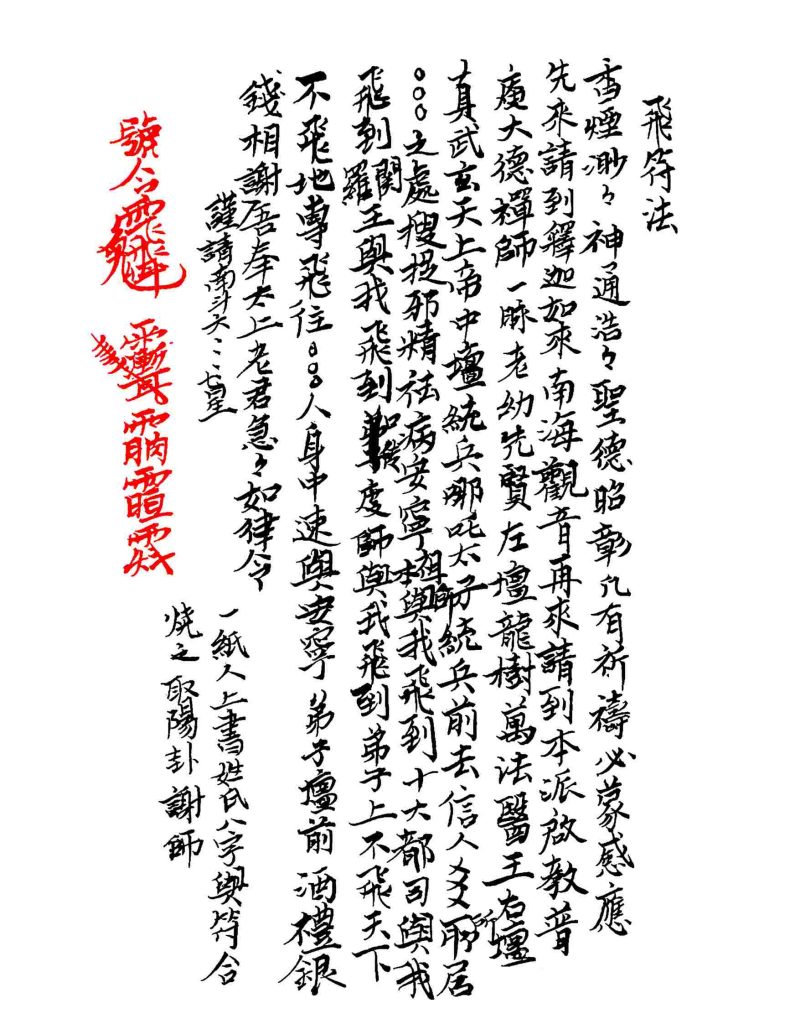 飛符法
香煙渺々神通浩々聖德昭彰凡有祈禱必蒙感應
先來請到釋迦如來南海觀音再來請到本派啟教普
庵大德禪師一脉老幼先賢左壇龍樹萬法醫王右壇
真武玄天上帝中壇統兵哪吒太子統兵前去信人㐅㐅所居
○○○之處搜捉邪精祛病安寧祖師本與我飛到十大都司與我
飛到閻羅王與我飛到度師與我飛到弟子上不飛天下
不飛地專飛往○○○人身中速與安寧弟子壇前酒禮銀
錢相謝吾奉太上老君急々如律令
謹請南斗六：：七星
號令
一紙人上書姓氏八字與符合
燒之取陽卦謝師